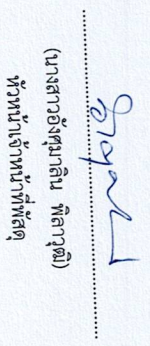 (นางสาวอังศุมาลิน พิลาวุฒิ)
หัวหน้าเจ้าหน้าที่พัสดุ